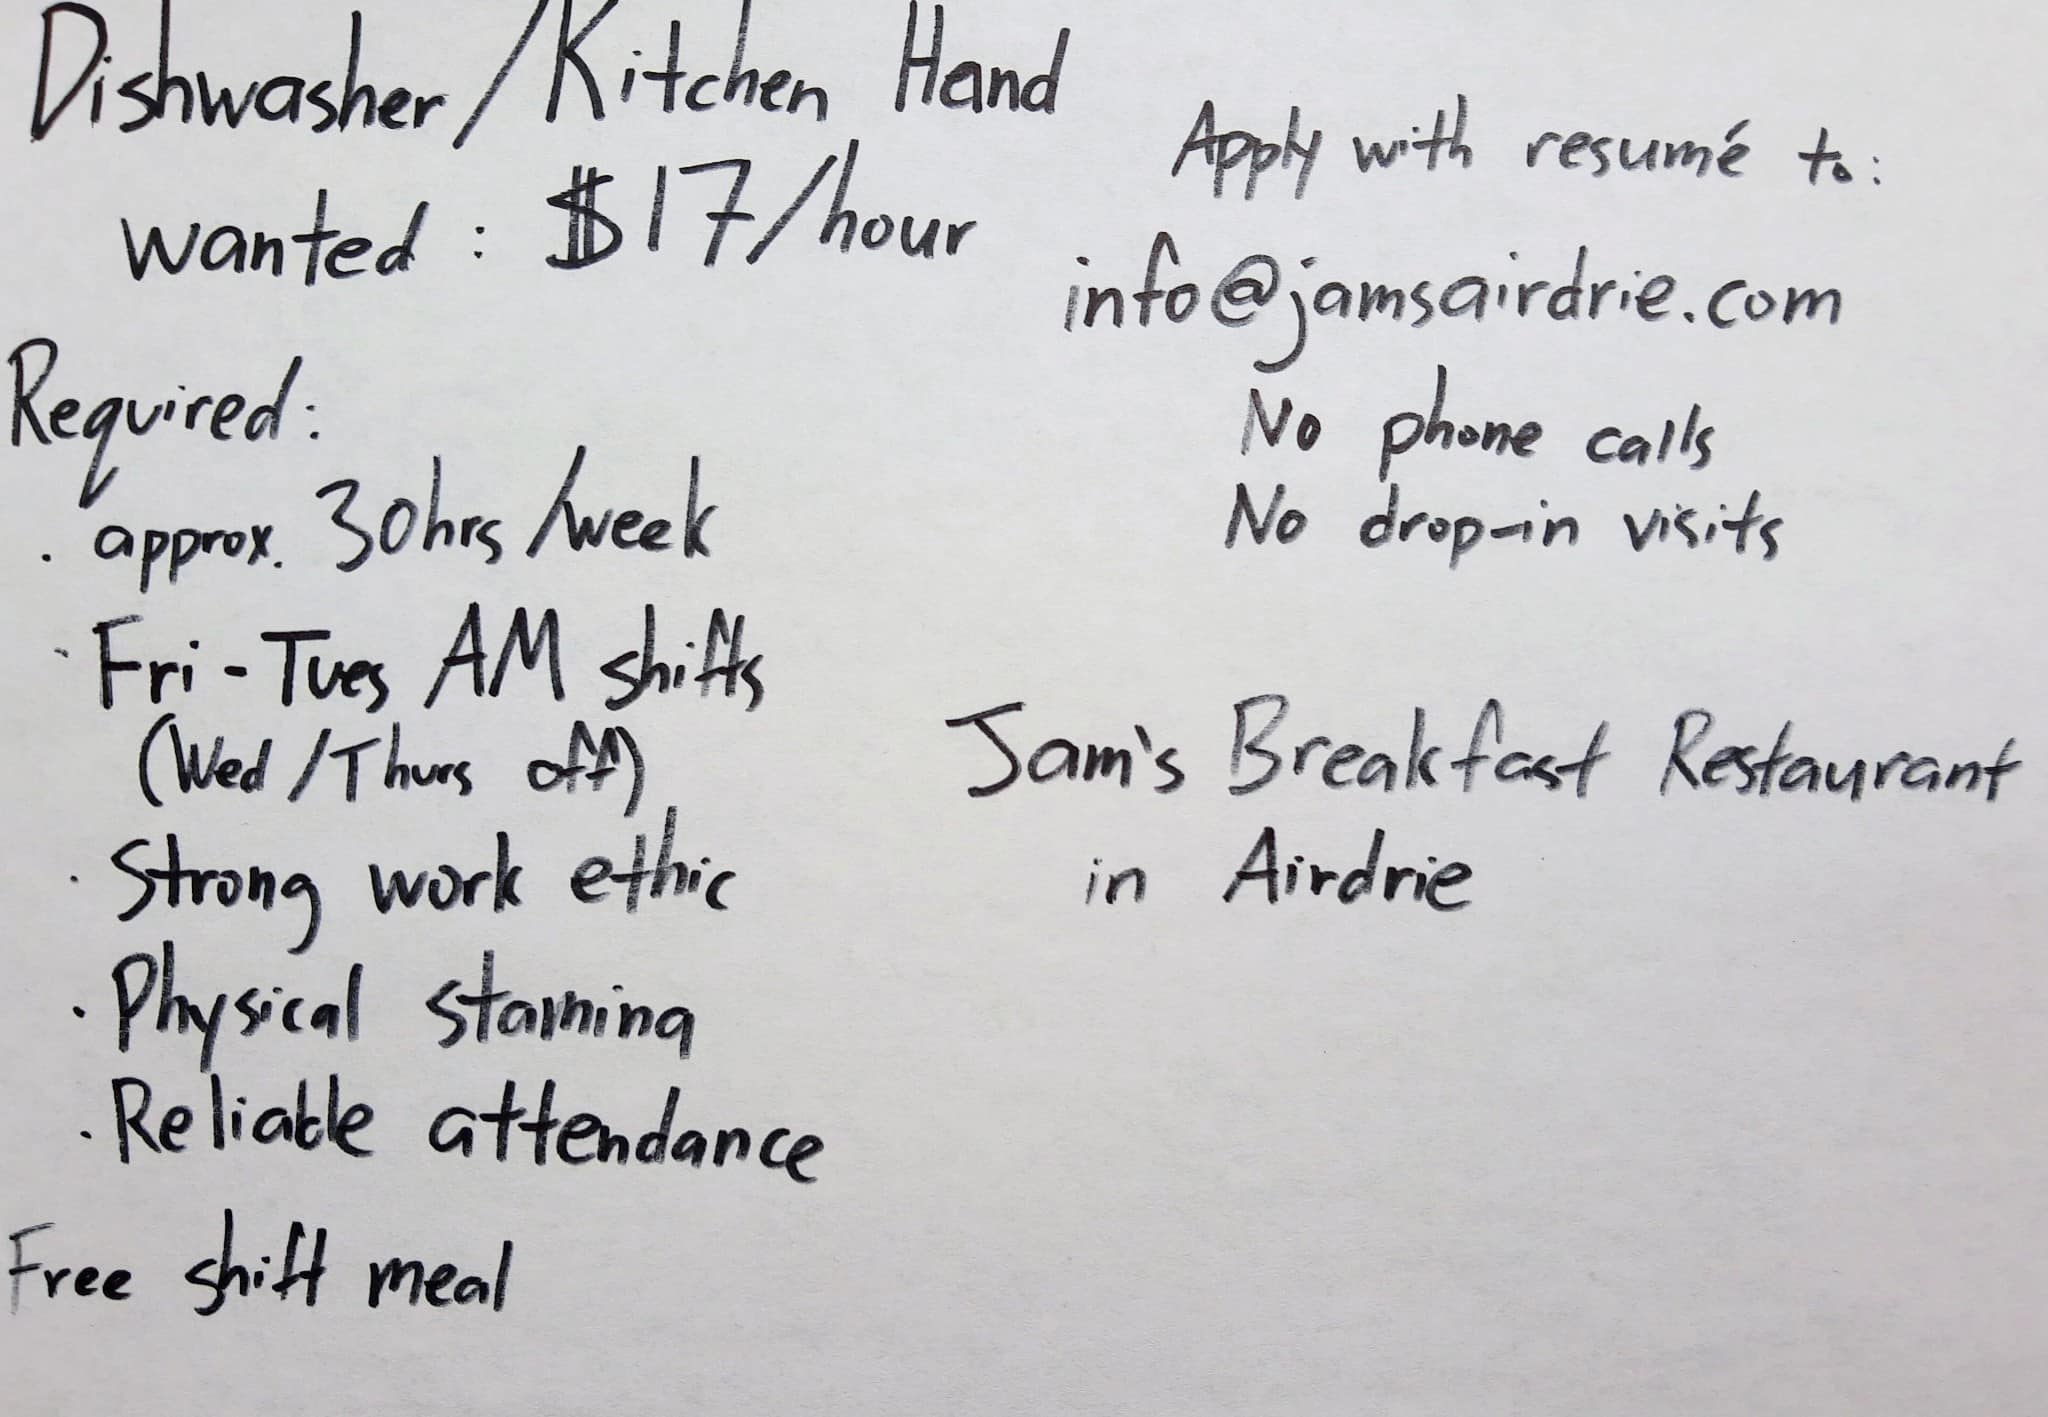 Dishwasher/Kitchen Hand
wanted : $17/hour
Required:
. approx. 30hrs/week
· Fri-Tues AM shifts
(Wed/Thurs off)
· Strong work ethic
· Physical stamina
· Reliable attendance
Free shift meal
Apply with resumé to:
info@jamsairdrie.com
No phone calls
No drop-in visits
Jam's Breakfast Restaurant
in Airdrie